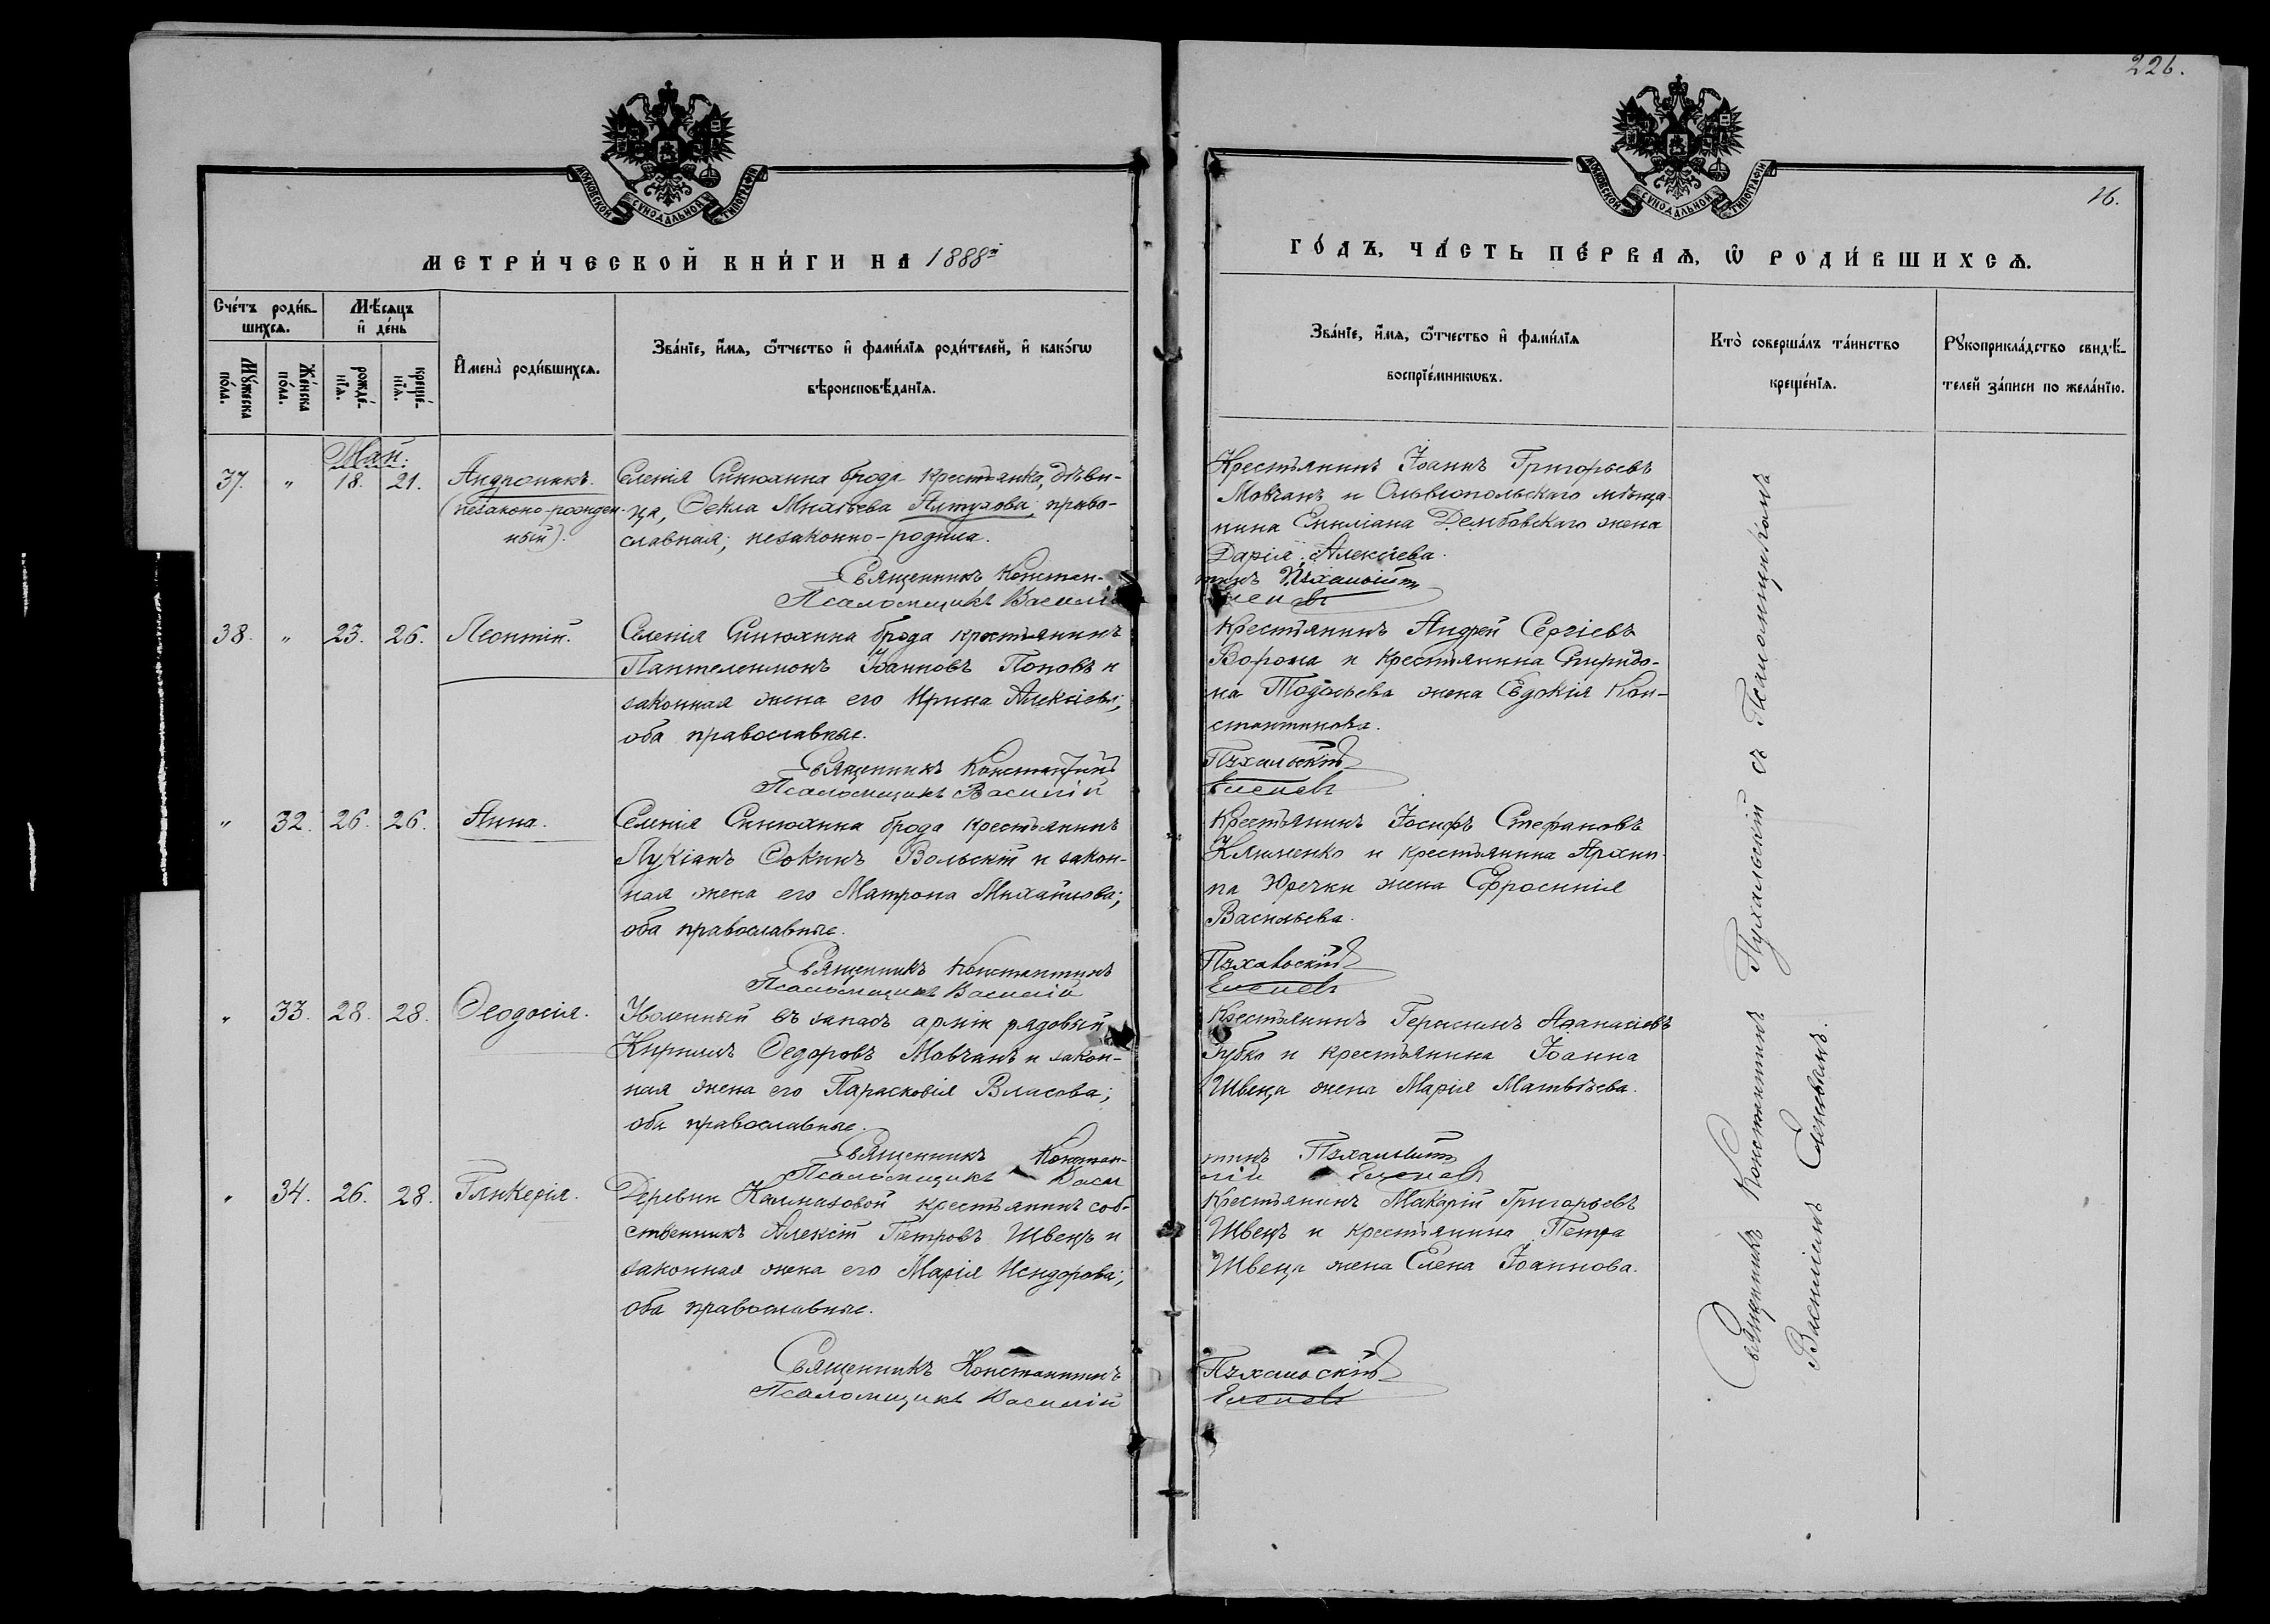 226.
16.
МОСКОВСКОЙ СѴНОДАЛЬНОЙ ТИПОГРАФІИ
МОСКОВСКОЙ СѴНОДАЛЬНОЙ ТИПОГРАФІИ
МЕТРИ́ЧЕСКОЙ КНИ́ГИ НА 1888й
ГО́ДЪ, ЧА́СТЬ ПЕ́РВАѦ, Ѡ҆ РОДИ́ВШИХСѦ.
Сче́тъ роди́в-
шихсѧ.
Мѣ́сѧцъ
и҆ де́нь
Мꙋ́жеска
по́ла.
Же́нска
по́ла.
рожде́-
нїѧ.
креще́-
нїѧ.
И҆мена̀ роди́вшихсѧ.
Зва́нїе, и҆́мѧ, ѻ҆́тчество и҆ фами́лїѧ роди́телей, и҆ како́гѡ
вѣроисповѣ́данїѧ.
Зва́нїе, и҆́мѧ, ѻ҆́тчество и҆ фами́лїѧ
воспрїе́мникѡвъ.
Кто̀ соверша́лъ та́инство
креще́нїѧ.
Рꙋкоприкла́дство свидѣ́-
телей за́писи по жела́нїю.
Май.
37. " 18. 21.
Андроникъ.
(незаконо-рожден-
ный).
Селенія Синюхина брода крестьянка, дѣви-
ца, Ѳекла Михѣева Алтухова, право-
славная; незаконно-родила.
Священникъ Констан-
Псаломщикъ Василій
Крестьянинъ Іоаннъ Григорьевъ
Мовчанъ и Ольвіопольскаго мѣща-
нина Емиліана Дембовскаго жена
Дарія Алексѣева.
тинъ Пухальскій
Еленевъ
38. " 23. 26.
Леонтій.
Селенія Синюхина брода крестьянинъ
Пантелеимонъ Іоанновъ Поповъ и
законная жена его Ирина Алексіева;
оба православные.
Священникъ Константинъ
Псаломщикъ Василій
Крестьянинъ Андрей Сергіевъ
Ворона и крестьянина Спиридо-
на жена Евдокія Кон-
стантинова.
Пухальскій
Еленевъ
" 32. 26. 26.
Анна.
Селенія Синюхина брода крестьянинъ
Лукіанъ Ѳокинъ Вольскій и закон-
ная жена его Матрона Михайлова;
оба православные.
Священникъ Константинъ
Псаломщикъ Василій
Крестьянинъ Іосифъ Стефановъ
Клименко и крестьянина Архип-
па Юречки жена Ефросинія
Васильева.
Пухальскій
Еленевъ
" 33. 28. 28.
Ѳеодосія.
Уволенный въ запасъ арміи рядовый
Кириллъ Ѳедоровъ Мовчанъ и закон-
ная жена его Парасковія Власова;
оба православные.
Священникъ Констан-
Псаломщикъ Васи
Крестьянинъ Герасимъ Аѳанасіевъ
Губко и крестьянина Іоанна
Швеца жена Марія Матвѣева.
тинъ Пухальскій
лій Еленевъ
" 34. 26. 28.
Гликерія.
Деревни Калмазовой крестьянинъ соб-
ственникъ Алексій Петровъ Швецъ и
законная жена его Марія Исидорова;
оба православные.
Священникъ Константинъ
Псаломщикъ Василій
Крестьянинъ Макарій Григорьевъ
Швецъ и крестьянина Петра
Швеца жена Елена Іоаннова.
Пухальскій
Еленевъ
Священникъ Константинъ Пухальскій съ Псаломщикомъ
Василіемъ Еленевымъ.